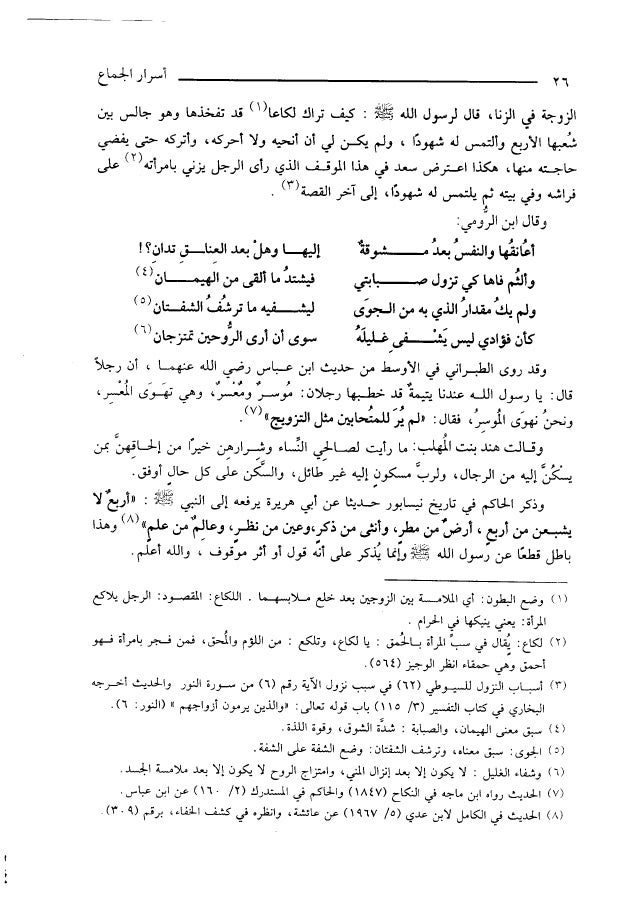 ٢٦ أسرار الجماع
الزوجة في الزنا، قال لرسول الله ﷺ : كيف تراك لكاعا(١) قد تفخذها وهو جالس بين
شُعبها الأربع وألتمس له شهودًا ، ولم يكن لي أن أنحيه ولا أحركه، وأتركه حتى يفضي
حاجته منها، هكذا اعترض سعد في هذا الموقف الذي رأى الرجل يزني بامرأته(٢) على
فراشه وفي بيته ثم يلتمس له شهودًا، إلى آخر القصة(٣) .
وقال ابن الرُّومي:
أعانقُها والنفسُ بعدُ مشوقةٌ إليها وهلْ بعد العناق تدانِ؟!
وألثُم فاها كي تزول صبابتي فيشتدُ ما ألقى من الهيمان(٤)
ولم يكُ مقدارُ الذي به من الجوَى ليشفيه ما ترشُفُ الشفتان(٥)
كأن فؤادي ليس يَشْفى غليلَهُ سوى أن أرى الرُّوحين تمتزجان(٦)
وقد روى الطبراني في الأوسط من حديث ابن عباس رضي الله عنهما ، أن رجلاً
قال: يا رسول الله عندنا يتيمةٌ قد خطبها رجلان: مُوسرٌ ومُعْسرٌ، وهي تهوَى المُعْسر،
ونحنُ نهوَى الموسرُ، فقال: «لم يُرَ للمتحابين مثل التزويج»(٧).
وقالت هند بنت المُهلب: ما رأيت لصالحي النِّساء وشِرارهن خيرًا من إلحاقهنَّ بمن
يسْكُنَّ إليه من الرجال، ولربَّ مسكونٍ إليه غير طائل، والسكن على كل حالٍ أوفق.
وذكر الحاكم في تاريخ نيسابور حديثا عن أبي هريرة يرفعه إلى النبي ﷺ : «أربعٌ لا
يشبعن من أربع ، أرضٌ من مطر، وأنثى من ذكر، وعين من نظرٍ، وعالِمٌ من علمٍ»(٨) وهذا
باطل قطعًا عن رسول الله ﷺ وإنما يُذكر على أنه قول أو أثر موقوف ، والله أعلم.
(١) وضع البطون: أي الملامسة بين الزوجين بعد خلع ملابسهما . اللكاع: المقصود: الرجل يلاكع
المرأة: يعني ينيكها في الحرام .
(٢) لكاع: يُقال في سبِّ المرأة بالحمق : يا لكاع، وتلكع : من اللؤم والمُحق، فمن فجر بامرأة فهو
أحمق وهي حمقاء انظر الوجيز (٥٦٤).
(٣) أسباب النزول للسيوطي (٦٢) في سبب نزول الآية رقم (٦) من سورة النور والحديث أخرجه
البخاري في كتاب التفسير (٣/ ١١٥) باب قوله تعالى: «والذين يرمون أزواجهم » (النور: ٦).
(٤) سبق معنى الهيمان، والصبابة : شدَّة الشوق، وقوة اللذة.
(٥) الجوى: سبق معناه، وترشف الشفتان: وضع الشفة على الشفة.
(٦) وشفاء الغليل : لا يكون إلا بعد إنزال المني، وامتزاج الروح لا يكون إلا بعد ملامسة الجسد.
(٧) الحديث رواه ابن ماجه في النكاح (١٨٤٧) والحاكم في المستدرك (٢/ ١٦٠) عن ابن عباس.
(٨) الحديث في الكامل لابن عدي (٥/ ١٩٦٧) عن عائشة، وانظره في كشف الخفاء، برقم (٣٠٩).